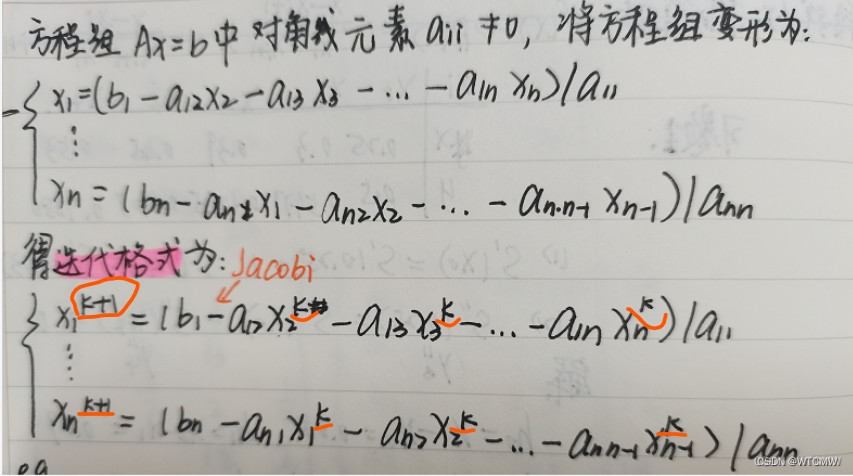 方程组 Ax=b中 对角线元素 aii ≠0, 将方程组变形为:
x₁=(b₁-a₁₂x₂-a₁₃x₃-...-a₁ₙxₙ)/a₁₁
⋮
xₙ=(bₙ-aₙ₁x₁-aₙ₂x₂-...-aₙ.ₙ₋₁xₙ₋₁)/aₙₙ
得迭代格式为: Jacobi
x₁^{k+1}=(b₁-a₁₂x₂^{k}-a₁₃x₃^{k}-...-a₁ₙxₙ^{k})/a₁₁
⋮
xₙ^{k+1}=(bₙ-aₙ₁x₁^{k}-aₙ₂x₂^{k}-...-aₙₙ₋₁xₙ₋₁^{k})/aₙₙ
CSDN @WTCMWI